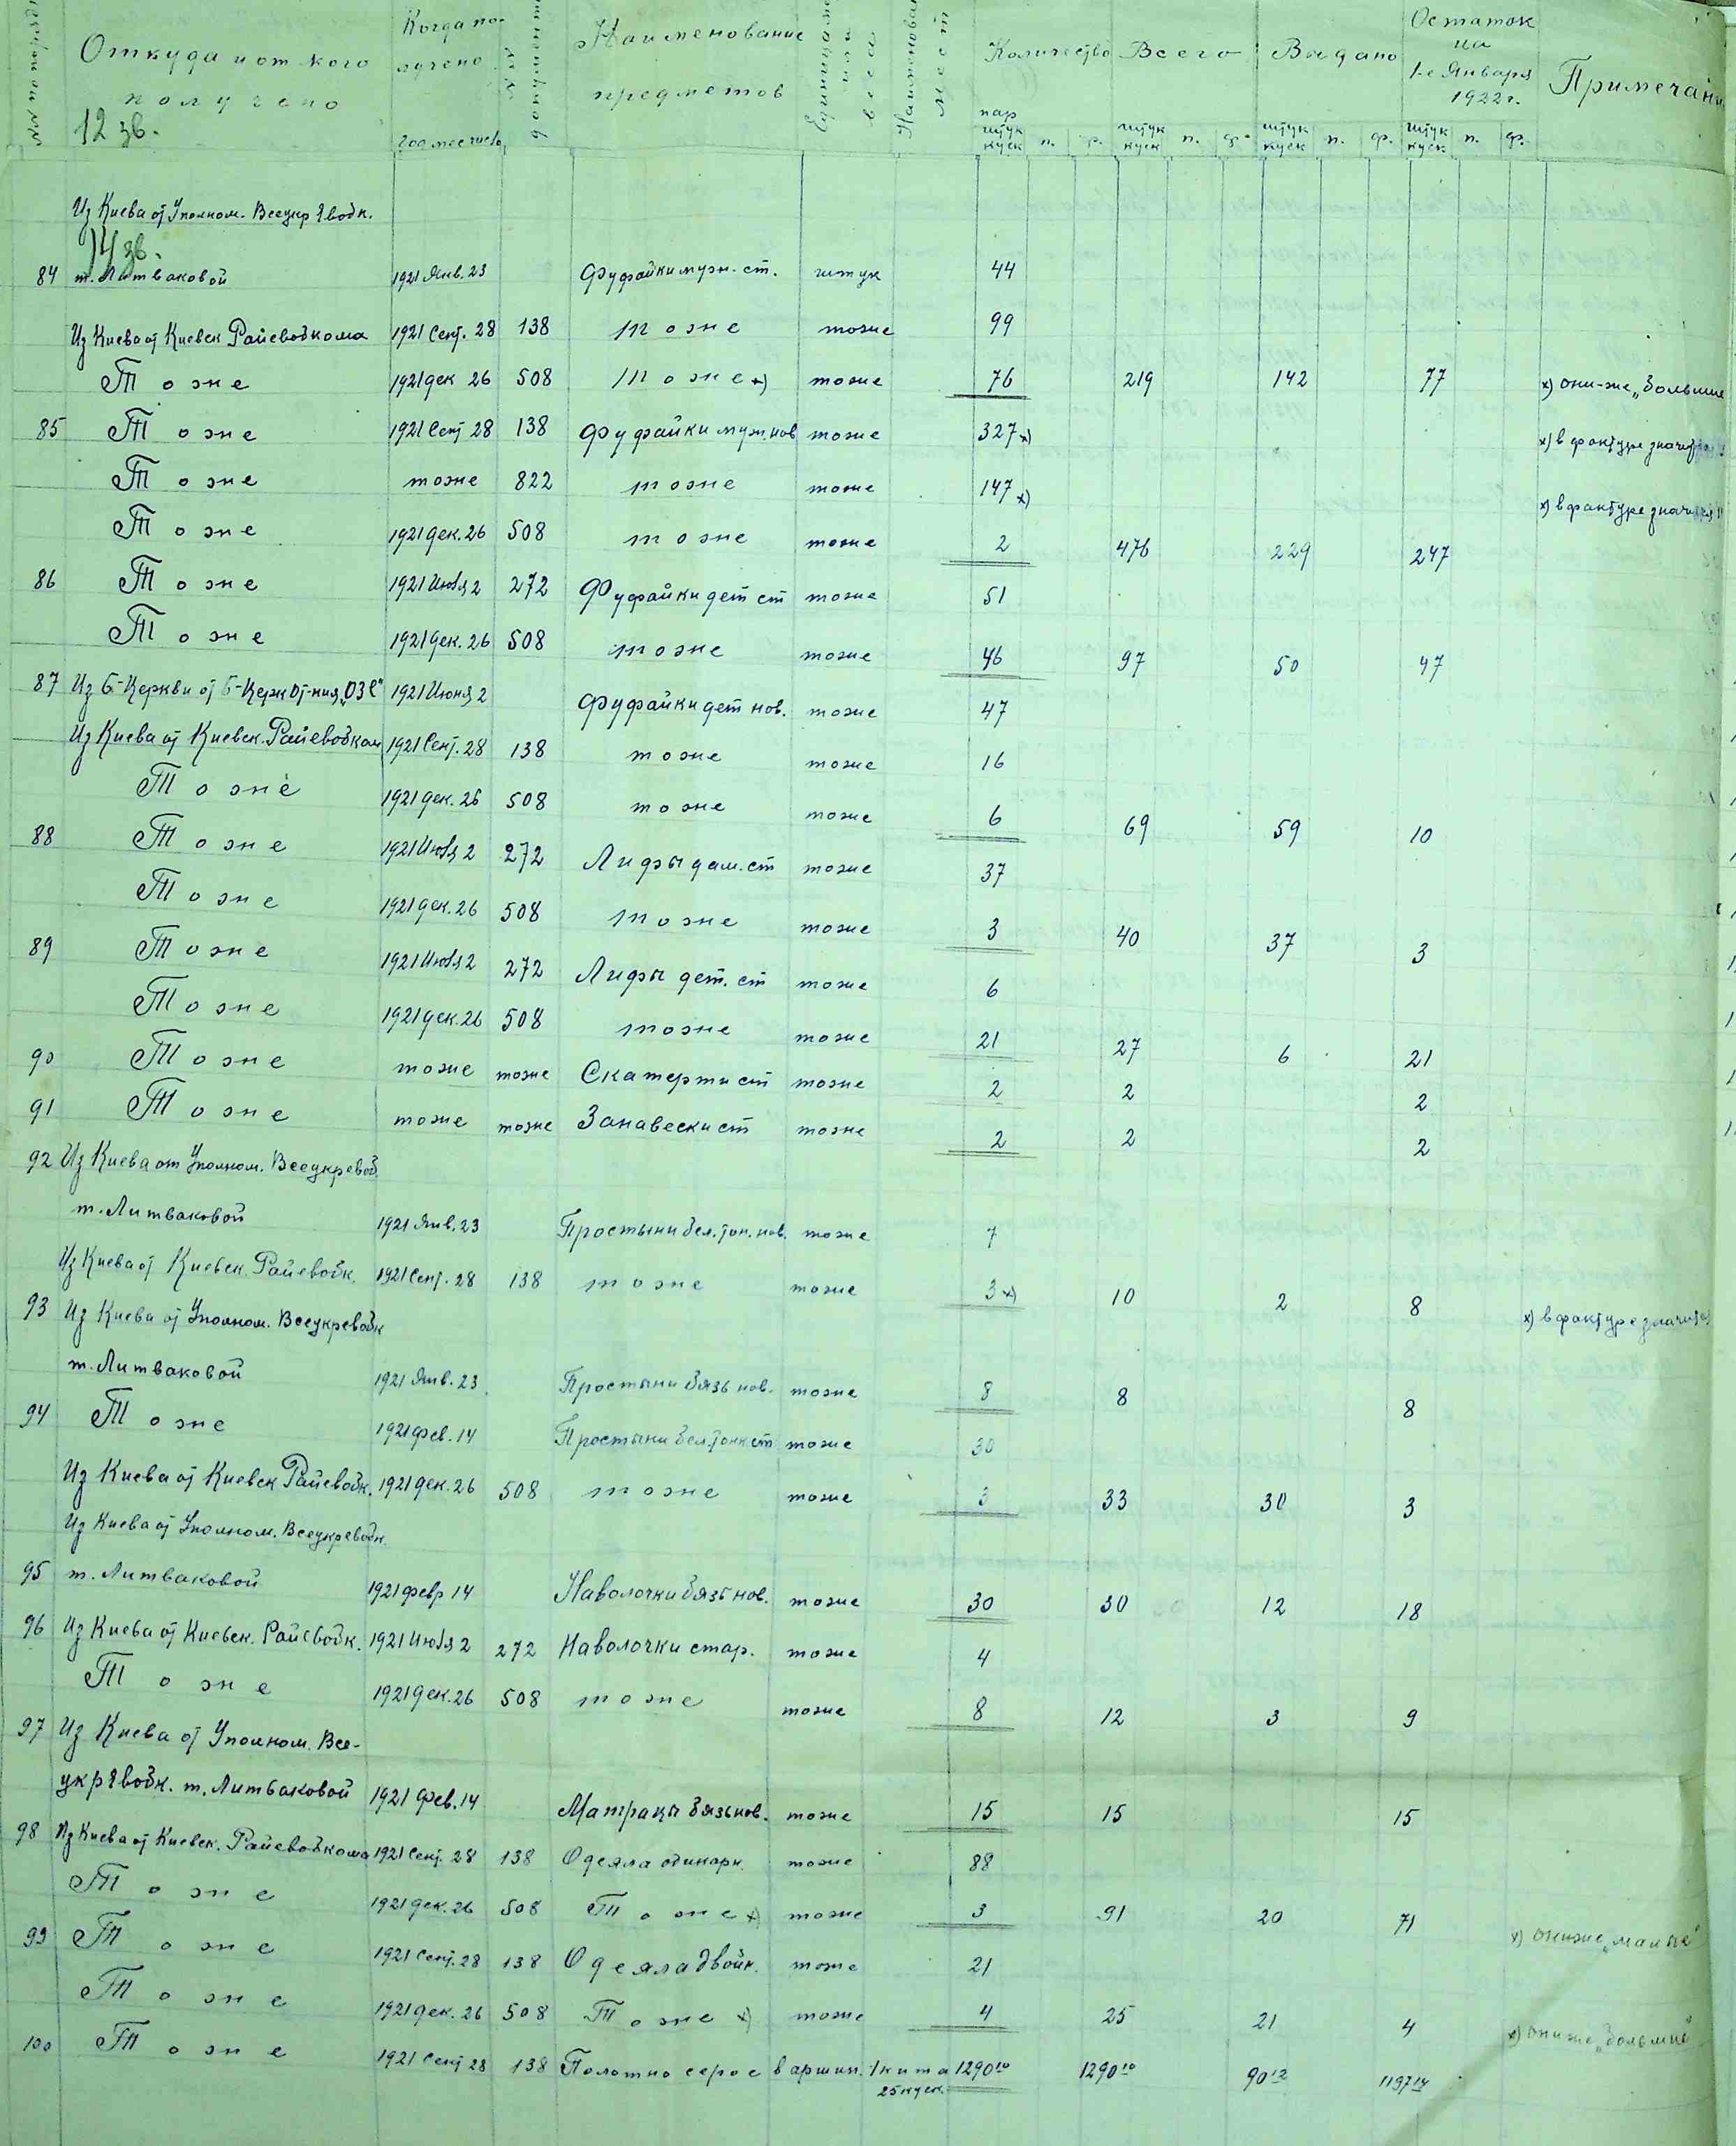 NN по поряд
Откуда и от кого получено
Когда получено
год месяц число
NN документ
Наименование предметов
Единица меры или веса
Наименован мест
Количество
Всего
Выдано
Остаток на 1-е Января 1922 г.
Примечани
12 зв.
пар штук куск п. ф. штук куск п. ф. штук куск п. ф. штук куск п. ф.
Из Киева от Уполном. Всеукр Евобк.
14 зв.
84 т. Литваковой 1921 Янв. 23 Фуфайки муж. ст. штук 44
Из Киева от Киевск Райевобкома 1921 Сент. 28 138 тоже тоже 99
Тоже 1921 дек 26 508 тоже х) тоже 76 219 142 77 х) они-же „больше
85 Тоже 1921 Сент 28 138 Фуфайки муж. нов тоже 327 х) х) в фактуре значится
Тоже тоже 822 тоже тоже 147 х) х) в фактуре значится
Тоже 1921 дек. 26 508 тоже тоже 2 476 229 247
86 Тоже 1921 Июля 2 272 Фуфайки дет ст тоже 51
Тоже 1921 дек. 26 508 тоже тоже 46 97 50 47
87 Из Б-Церкви от Б-Церк От-ния „ОЗЕ" 1921 Июня 2 Фуфайки дет нов. тоже 47
Из Киева от Киевск. Райевобком 1921 Сент. 28 138 тоже тоже 16
Тоже 1921 дек. 26 508 тоже тоже 6 69 59 10
88 Тоже 1921 Июля 2 272 Лифы дам. ст тоже 37
Тоже 1921 дек. 26 508 тоже тоже 3 40 37 3
89 Тоже 1921 Июля 2 272 Лифы дет. ст тоже 6
Тоже 1921 дек. 26 508 тоже тоже 21 27 6 21
90 Тоже тоже тоже Скатерти ст тоже 2 2 2
91 Тоже тоже тоже Занавески ст тоже 2 2 2
92 Из Киева от Уполном. Всеукревоб
т. Литваковой 1921 Янв. 23 Простыни бел. тон. нов. тоже 7
Из Киева от Киевск. Райевобк. 1921 Сент. 28 138 тоже тоже 3 х) 10 2 8 х) в фактуре значится
93 Из Киева от Уполном. Всеукревобк
т. Литваковой 1921 Янв. 23 Простыни бязь нов. тоже 8 8 8
94 Тоже 1921 Фев. 14 Простыни бел. тонк ст тоже 30
Из Киева от Киевск Райевобк. 1921 дек. 26 508 тоже тоже 3 33 30 3
Из Киева от Уполном. Всеукревобк
95 т. Литваковой 1921 февр 14 Наволочки бязь нов. тоже 30 30 12 18
96 Из Киева от Киевск. Райевобк. 1921 Июля 2 272 Наволочки стар. тоже 4
Тоже 1921 дек. 26 508 тоже тоже 8 12 3 9
97 Из Киева от Уполном. Все-
укр Евобк. т. Литваковой 1921 Фев. 14 Матрацы бязь нов. тоже 15 15 15
98 Из Киева от Киевск. Райевобкома 1921 Сент. 28 138 Одеяла одинарн. тоже 88
Тоже 1921 дек. 26 508 Тоже х) тоже 3 91 20 71 х) они же „малые"
99 Тоже 1921 Сент. 28 138 Одеяла двойн. тоже 21
Тоже 1921 дек. 26 508 Тоже х) тоже 4 25 21 4 х) они же „большие"
100 Тоже 1921 Сент 28 138 Полотно серое в аршин. 1 кипа 25 куск. 1290¹⁰ 1290¹⁰ 90¹² 1197¹⁴